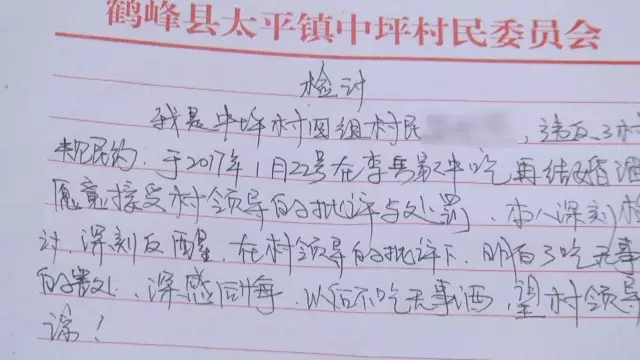 鹤峰县太平镇中坪村民委员会
检讨
我是中坪村四组村民 , 违反了村
规民约.于2017年1月22号在李 家中吃再结婚酒
愿意接受村领导的批评与处罚.本人深刻检
讨.深刻反醒.在村领导的批评下.明白了吃无事
的害处.深感后悔.以后不吃无事酒,望村领导
谅!